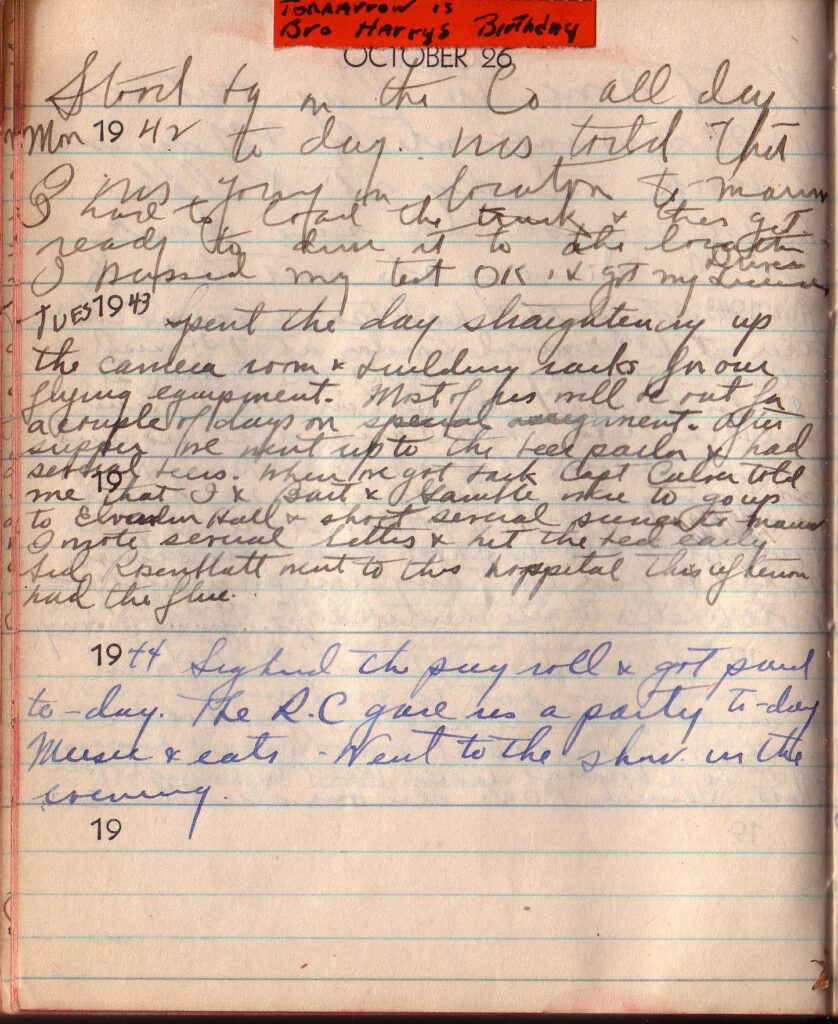 Tomarrow is
Bro Harrys Birthday
OCTOBER 26
Stood by in the Co all day
Mon 1942 to day. was told that
I was going on location to
I had to load the truck & then get
ready to drive it to the location
I passed my test OK. & got my Drivers License
TUES 1943 Spent the day straightening up
the camera room & building racks for our
flying equipment. Most of us will be out for
a couple of days on special assignment. After
supper we went up to the beer parlor & had
several beers. When we got back Capt Culver told
19
me that I & Bart & Gamble were to go up
to Hall & shoot several
I wrote several letters & hit the bed early
Sid Rosenblatt went to the hospital this afternoon
had the flue.
1944 Sighned the pay roll & got paid
to-day. The R.C gave us a party to-day
Music & eats - Went to the show in the
evening.
19